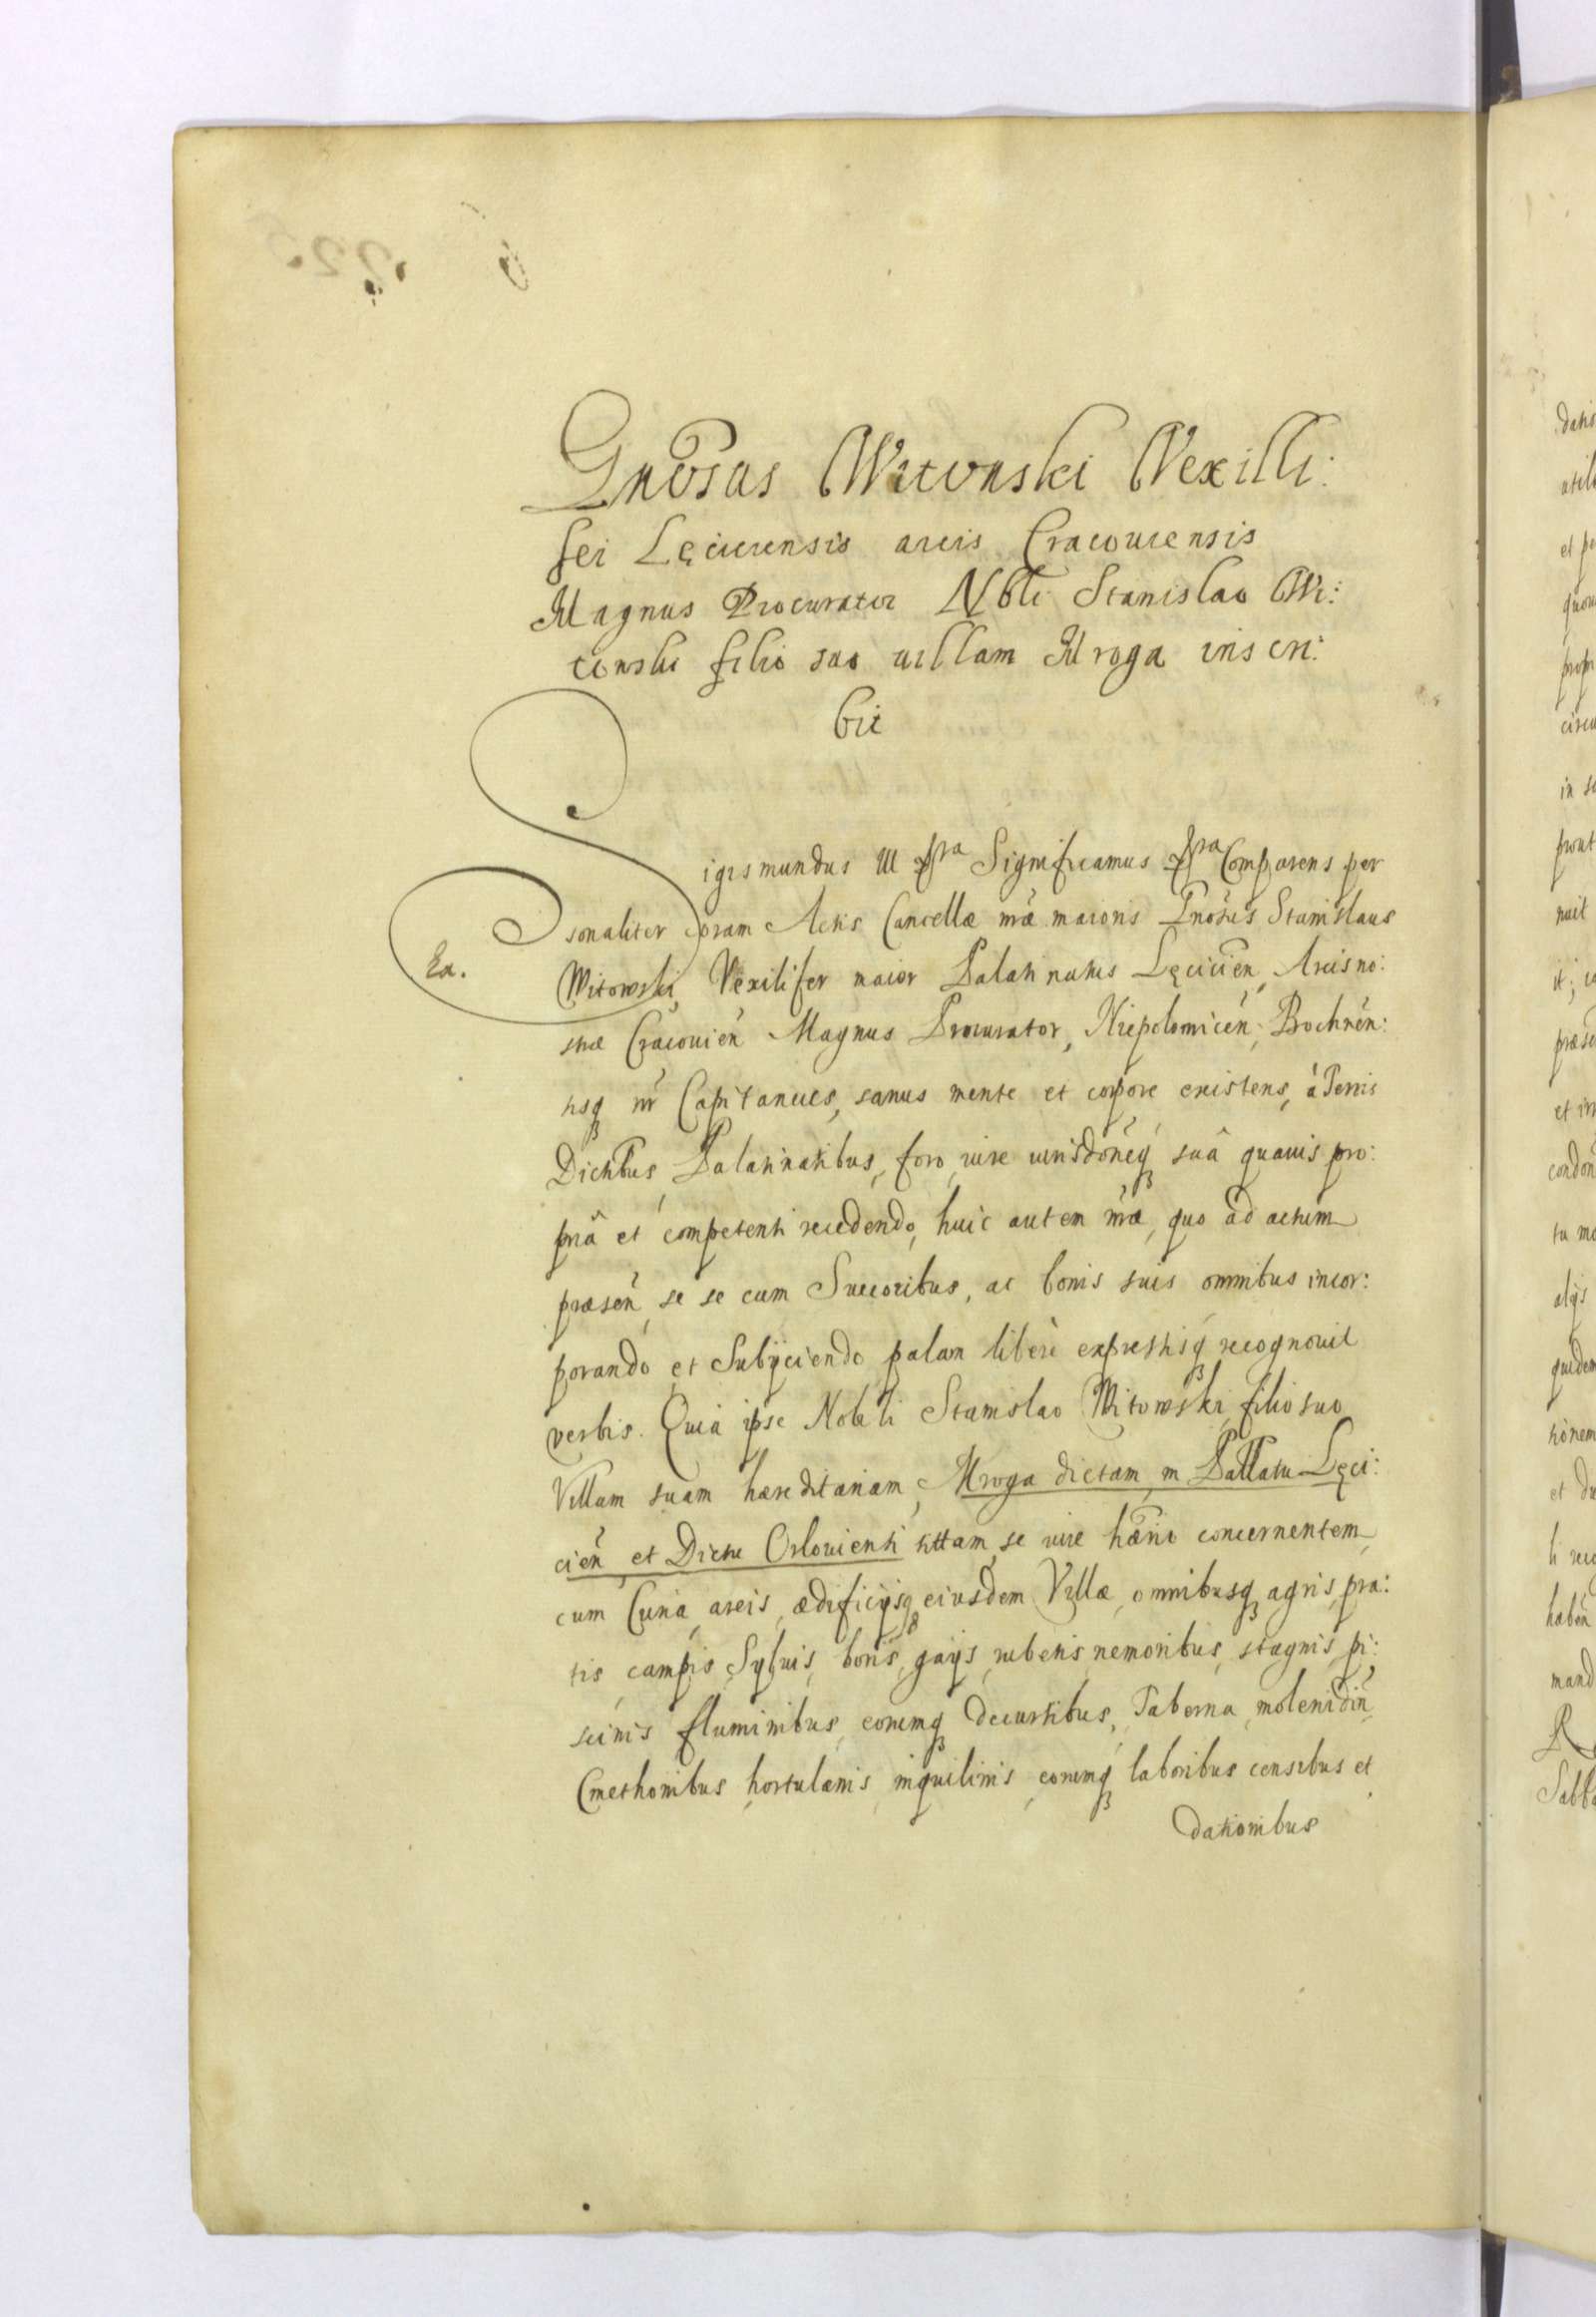 Gnosus Witowski Vexilli:
fer Lęciciensis arcis Cracouiensis
Magnus Procurator Nbli Stanislao Wi:
towski filio suo uillam Mroga inscri:
bit
Sigismundus III Significamus Comparens per
sonaliter coram Actis Cancellæ nræ maioris Gnosus Stanislaus
Ex.
Witowski, Vexilifer maior Palatinatus Lęcicien, Arcis no:
stræ Cracouien Magnus Procurator, Niepolomicen, Bochnen:
tisq nr Capitaneus, sanus mente et corpore existens, à Terris
Districtibus Palatinatibus, foro, iure iurisdoneq suâ quauis pro:
priâ et competenti recedendo, huic autem nræ, quo ad actum
præsen, se se cum Succoribus, ac bonis suis omnibus incor:
porando et Subijciendo, palam libere expressisq recognouit
verbis. Quia ipse Nobili Stanislao Witowski, filio suo
Villam suam hæreditariam, Mroga dictam, in Pallatu Lęci:
cien et Dictu Orlouienti sittam, se iure hærio concernentem,
cum Curia, areis, ædificijsq eiusdem Villæ, omnibusq agris, pra:
tis, campis, Syluis, boris, gaijs, rubetis, nemoribus, stagnis, pi:
scinis fluminibus, eorumq decursibus, Taberna, molendin,
Cmethonibus, hortulanis, inquilinis, eorumq laboribus censibus et
dationibus